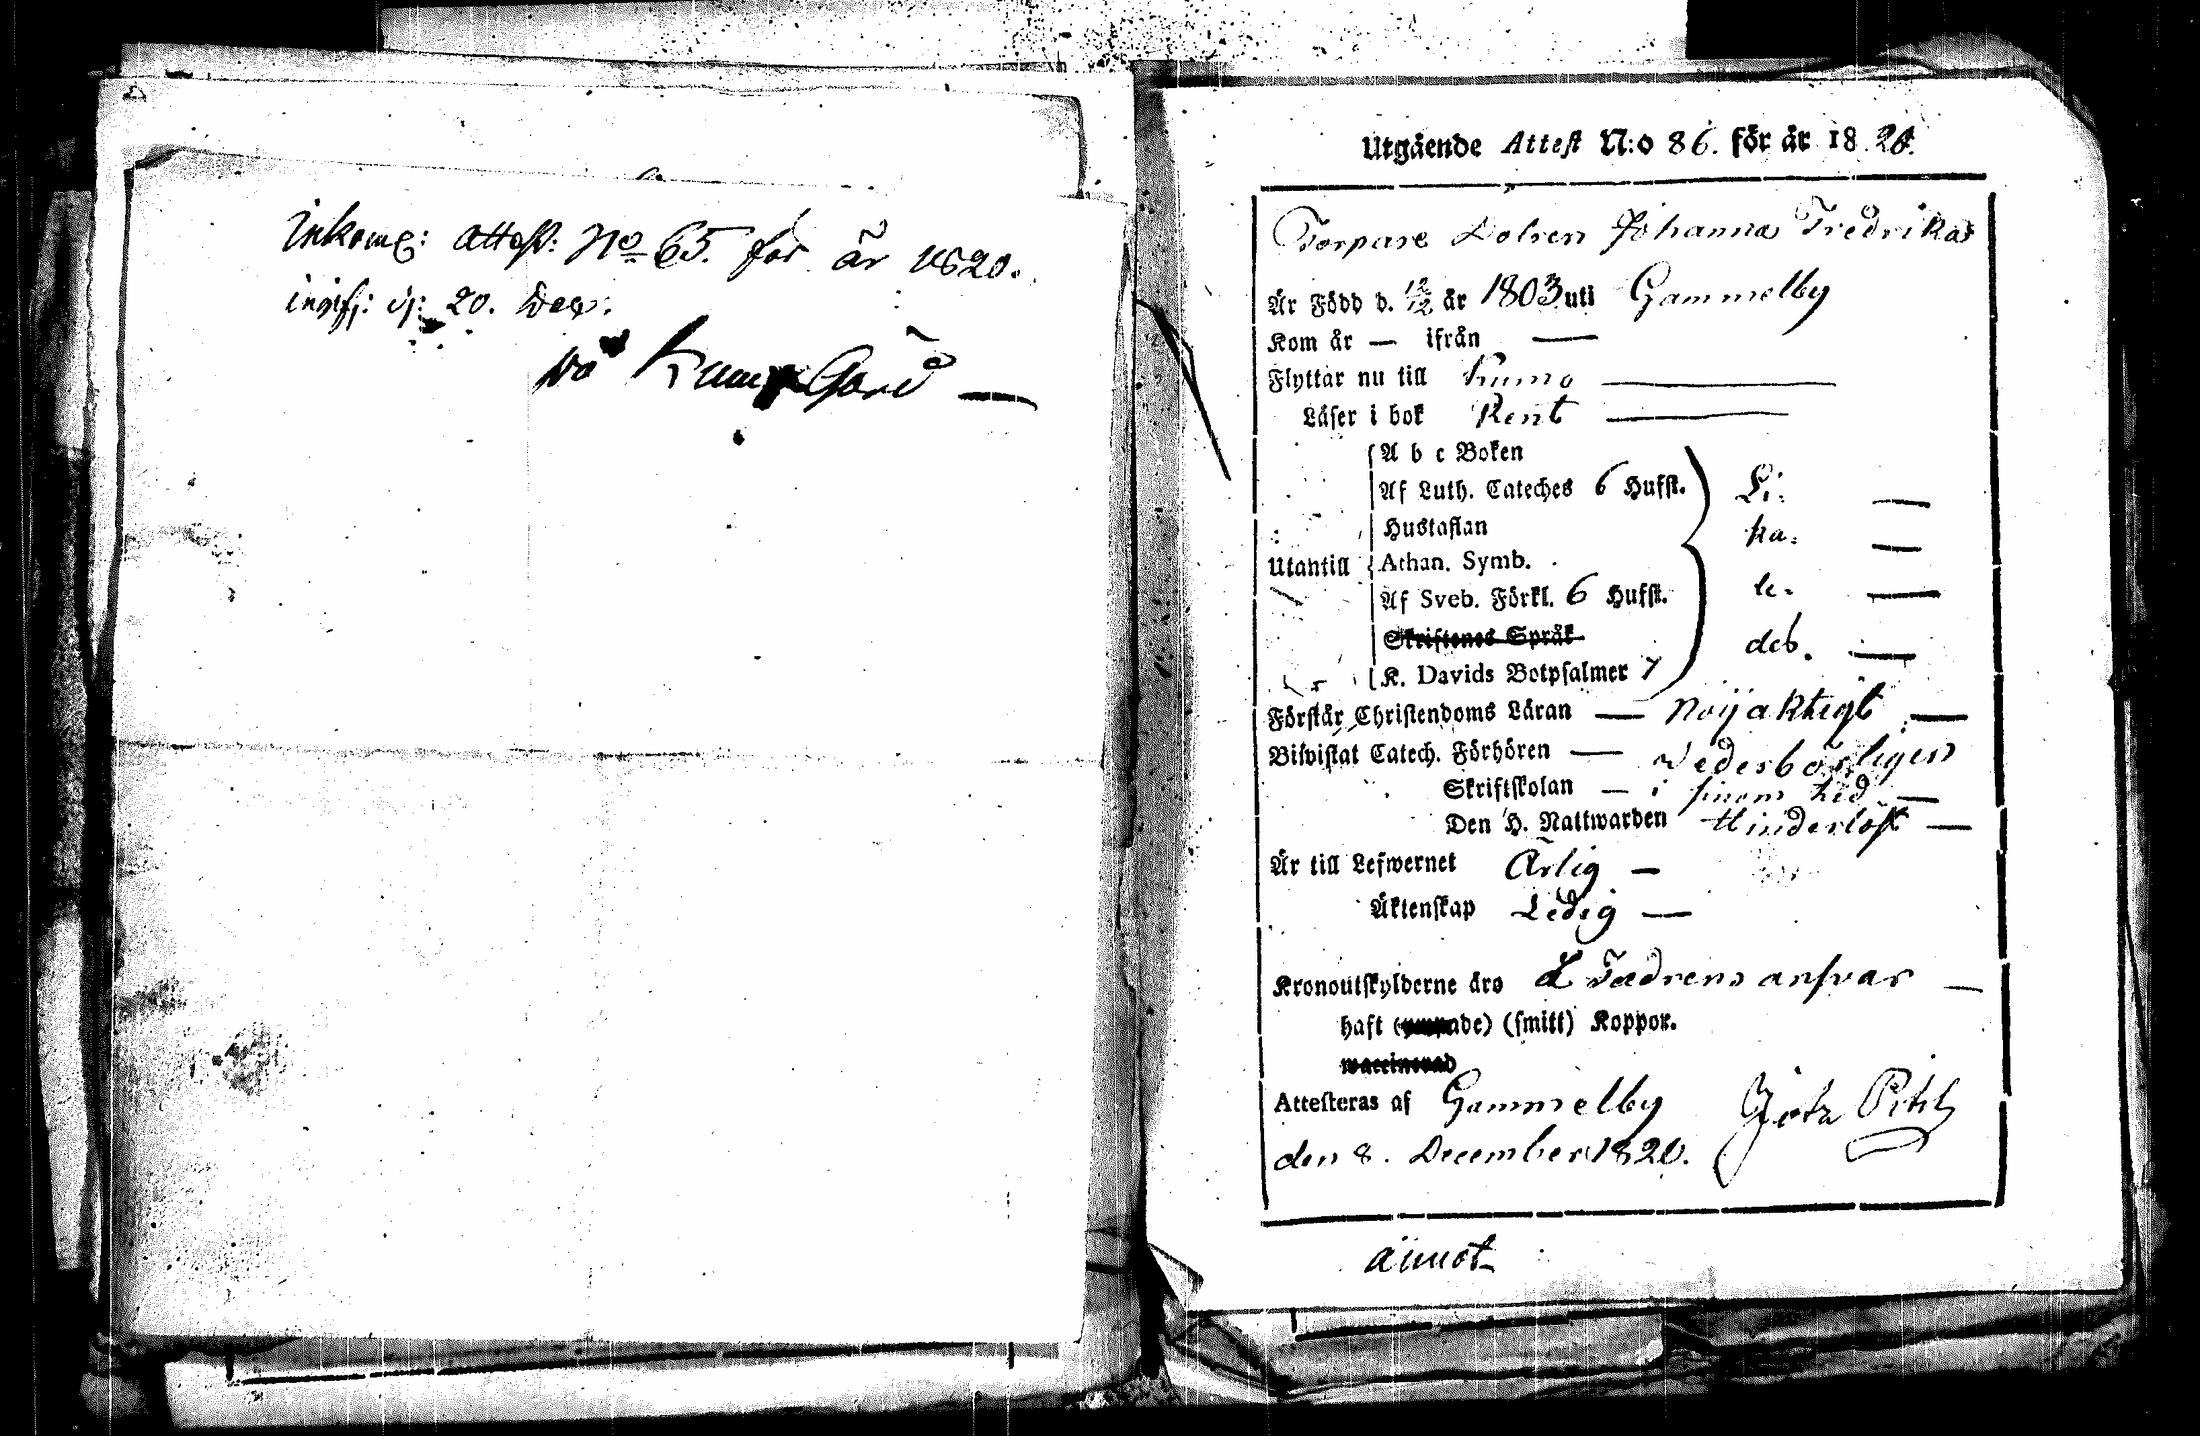 Inkomg: Attest: No 65. för år 1820.
ingif: d: 20. Dec:
Kumo Gård —
Utgående Attest N:o 86. för år 1820.
Torpare Dotren Johanna Fredrika
Är Född d. 12/12 år 1803 uti Gammelby
Kom år — ifrån —
Flyttar nu till Kumo —
Läser i bok Rent —
A b c Boken
Af Luth. Cateches 6 Hufst. Li- —
Hustaflan ka- —
Utantill Athan. Symb.
Af Sveb. Förkl. 6 Hufst. le- —
Skriftenes Språk
des. —
K. Davids Botpsalmer 7
Förstår Christendoms Läran — Nöijaktigt —
Biwistat Catech. Förhören — Wederbörligen
Skriftskolan — i sinom tid —
Den H. Nattwarden Hinderlöst —
Är till Lefwernet Ärlig —
Äktenskap Ledig —
Kronoutskylderne äro å Fadrens answar —
haft (ympade) (smitt) Koppor.
waccinerad
Attesteras af Gammelby
den 8. December 1820.